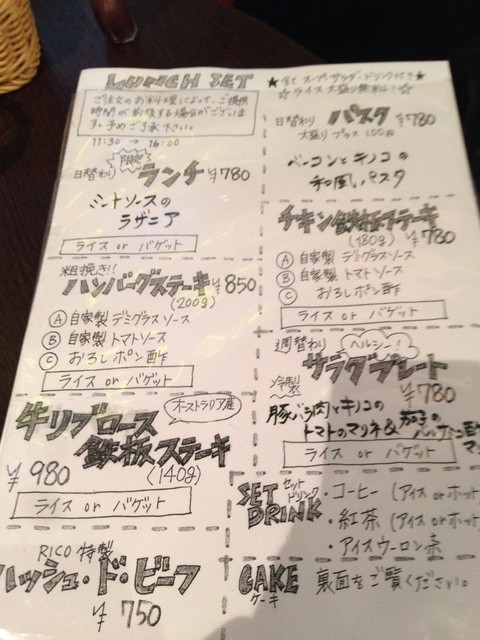 LUNCH SET
ご注文のお料理によって、ご提供
時間が前後する場合がございま
す。予めご了承下さい。
11:30 → 16:00
日替わり 限定 ランチ ¥780
ミートソースの
ラザニア
ライス or バゲット
粗挽き!!
ハンバーグステーキ ¥850
(200g)
Ⓐ 自家製 デミグラスソース
Ⓑ 自家製 トマトソース
Ⓒ おろしポン酢
ライス or バゲット
牛リブロース
オーストラリア産
鉄板ステーキ
¥980 (140g)
ライス or バゲット
RICO 特製
ハッシュ・ド・ビーフ
¥750
★全て スープ・サラダ・ドリンク付き★
☆ライス大盛り無料!☆
日替わり パスタ ¥780
大盛り プラス 100円
ベーコンとキノコの
和風パスタ
チキン鉄板ステーキ
(180g) ¥780
Ⓐ 自家製 デミグラスソース
Ⓑ 自家製 トマトソース
Ⓒ おろしポン酢
ライス or バゲット
週替わり ヘルシー!
サラダプレート
冷製 ¥780
豚バラ肉とキノコの
トマトのマリネ&
ライス or バゲット
SET DRINK セットドリンク
・コーヒー (アイス or ホット)
・紅茶 (アイス or ホット
・アイスウーロン茶
CAKE ケーキ 裏面をご覧ください。